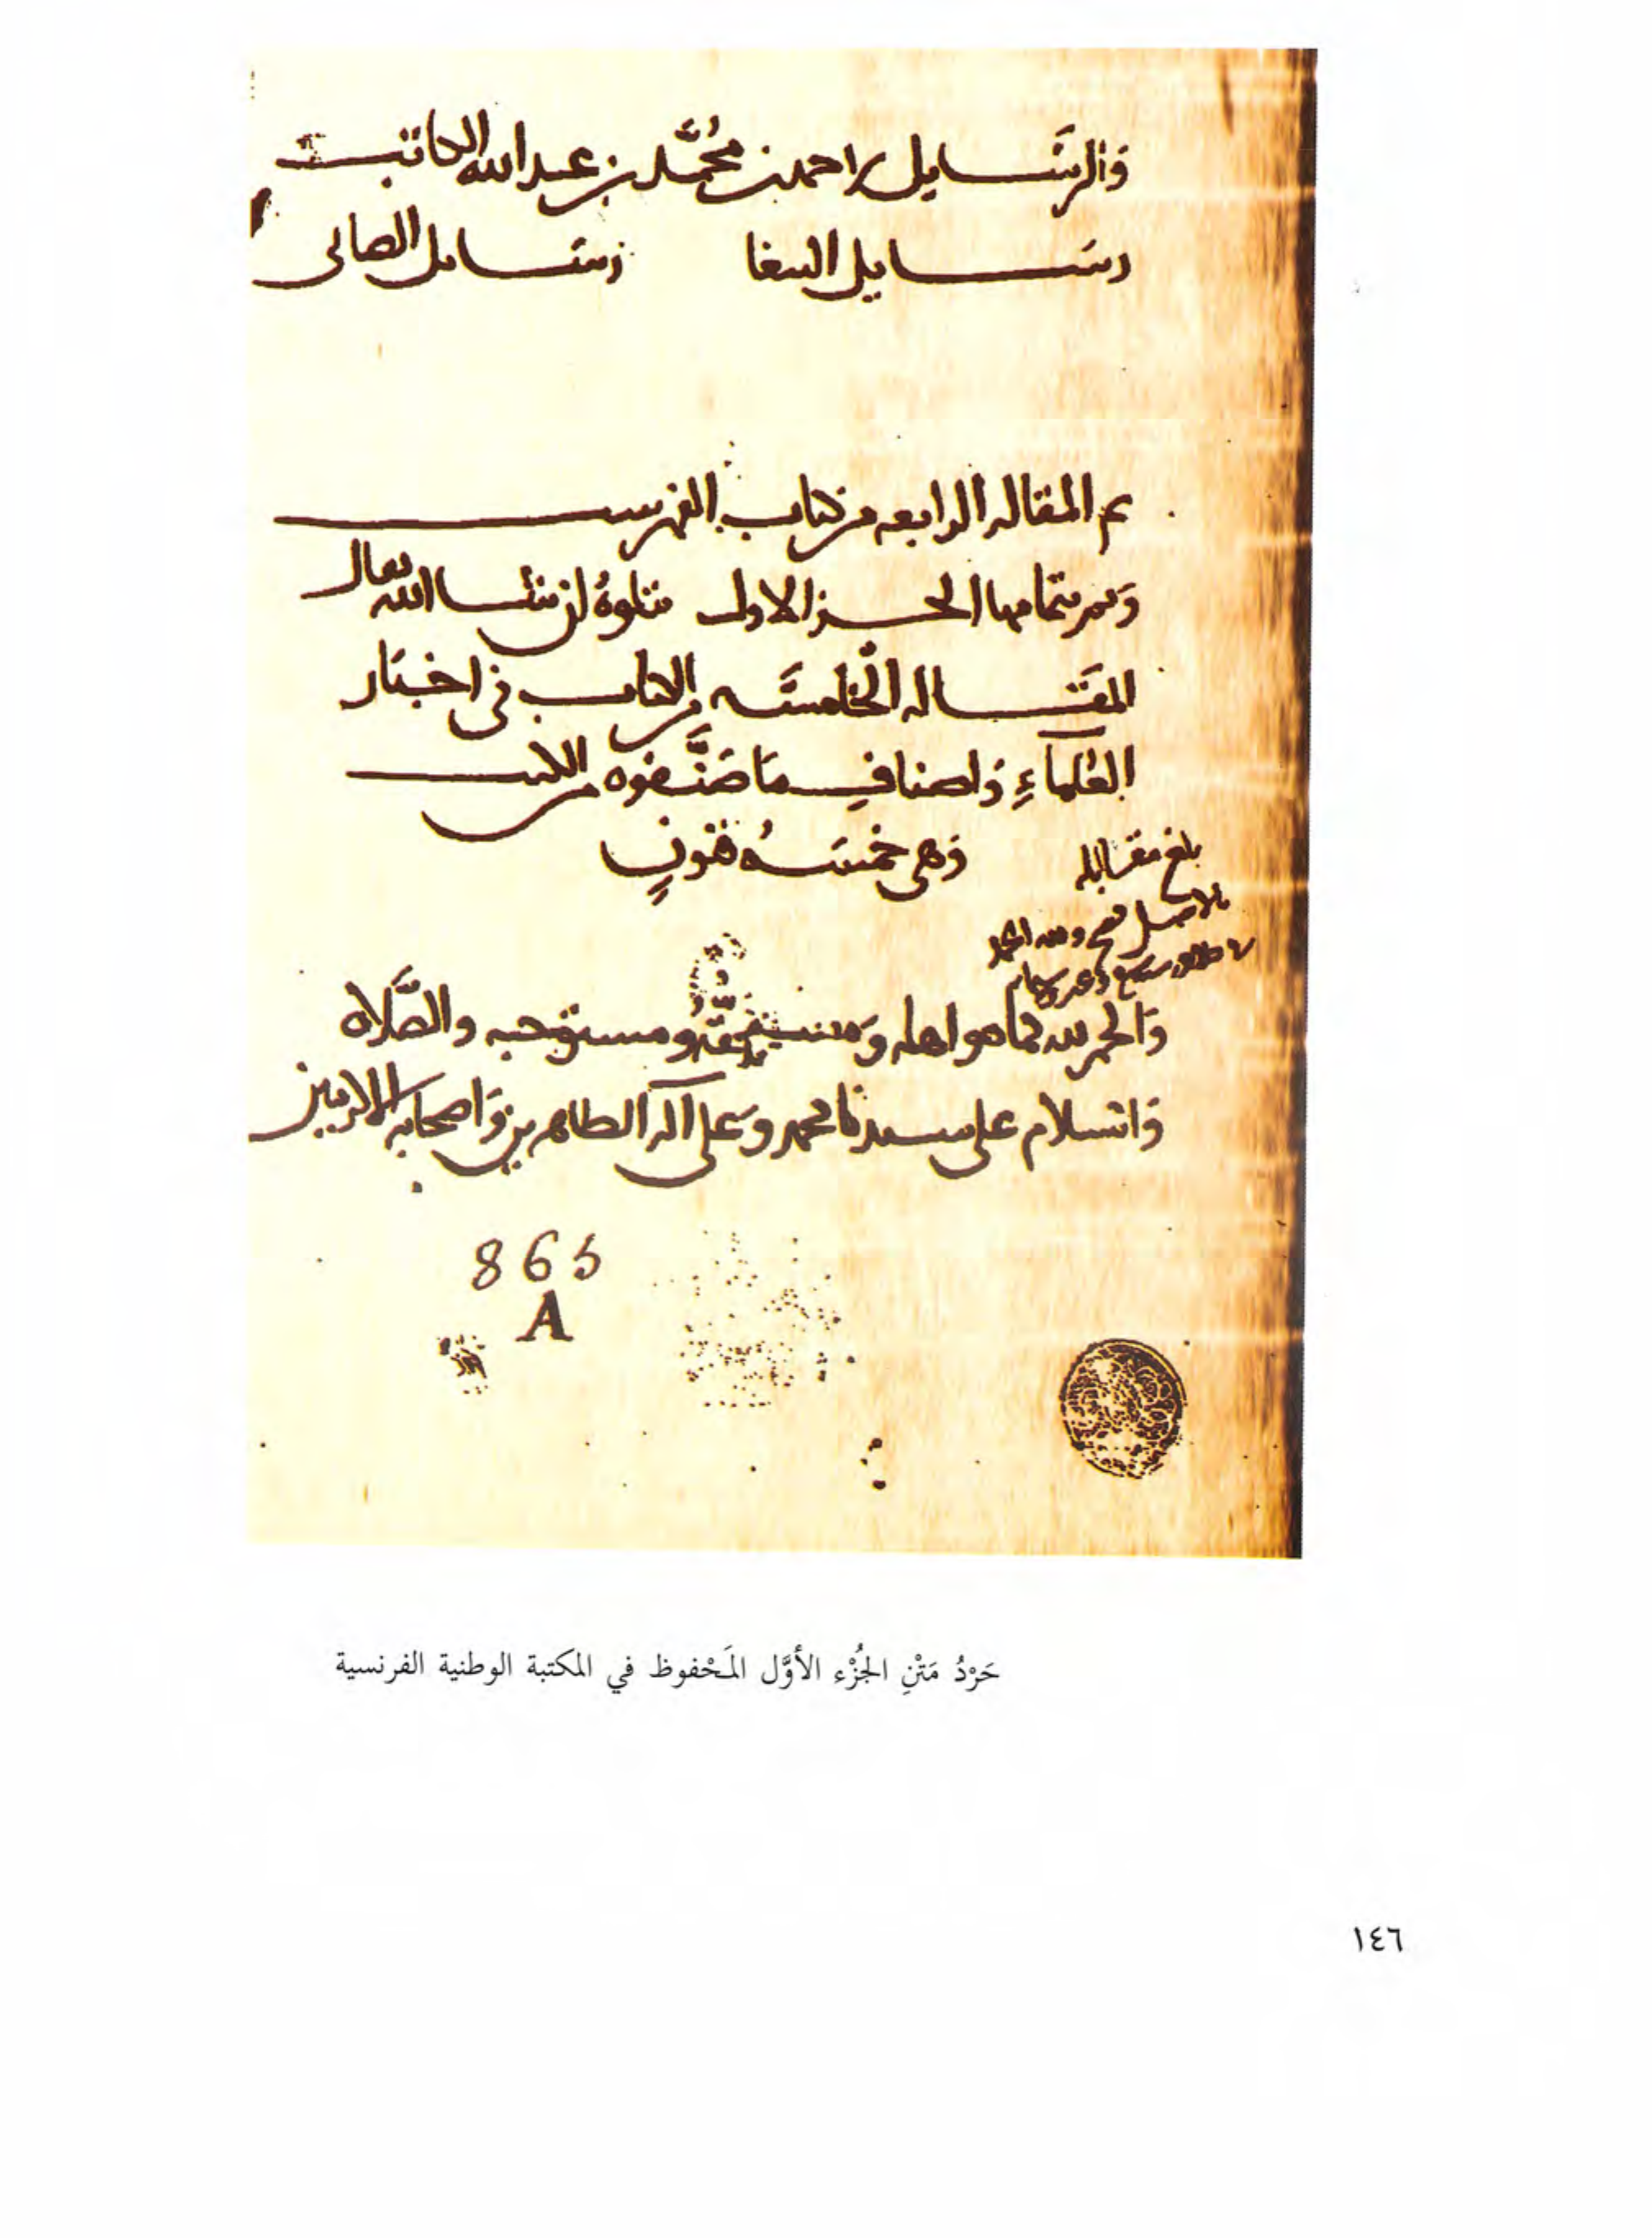 والرَّسَايل لاحمد بن محُمَّد بن عبد الله الكاتب
رسَايل الببغا رسَايل الصابى
تم المقاله الرابعه من كتاب الفهرست
وَتم بتمامها الجزالاول يتلوهُ ان شا الله تعالى
المقَاله الخامسَه من الكتاب فى اخبَار
العُلمآءِ وَاصنافِ مَا صَنَّفوه من الكتب
وَهى خمسَهُ فنونٍ
بلغ مقابله
بالاصل فصح ولله الحمد
وَالحمد لله كما هو اهله وَمستحِقُّهُ ومستوجبه والصَّلاه
وَالسلام على سيدنا محمد وَعلى آله الطاهرين وَاصحابه الاكرمين
865
A
حَرْدُ مَتْنِ الجُزْء الأوَّل المَحْفوظ في المكتبة الوطنية الفرنسية
١٤٦